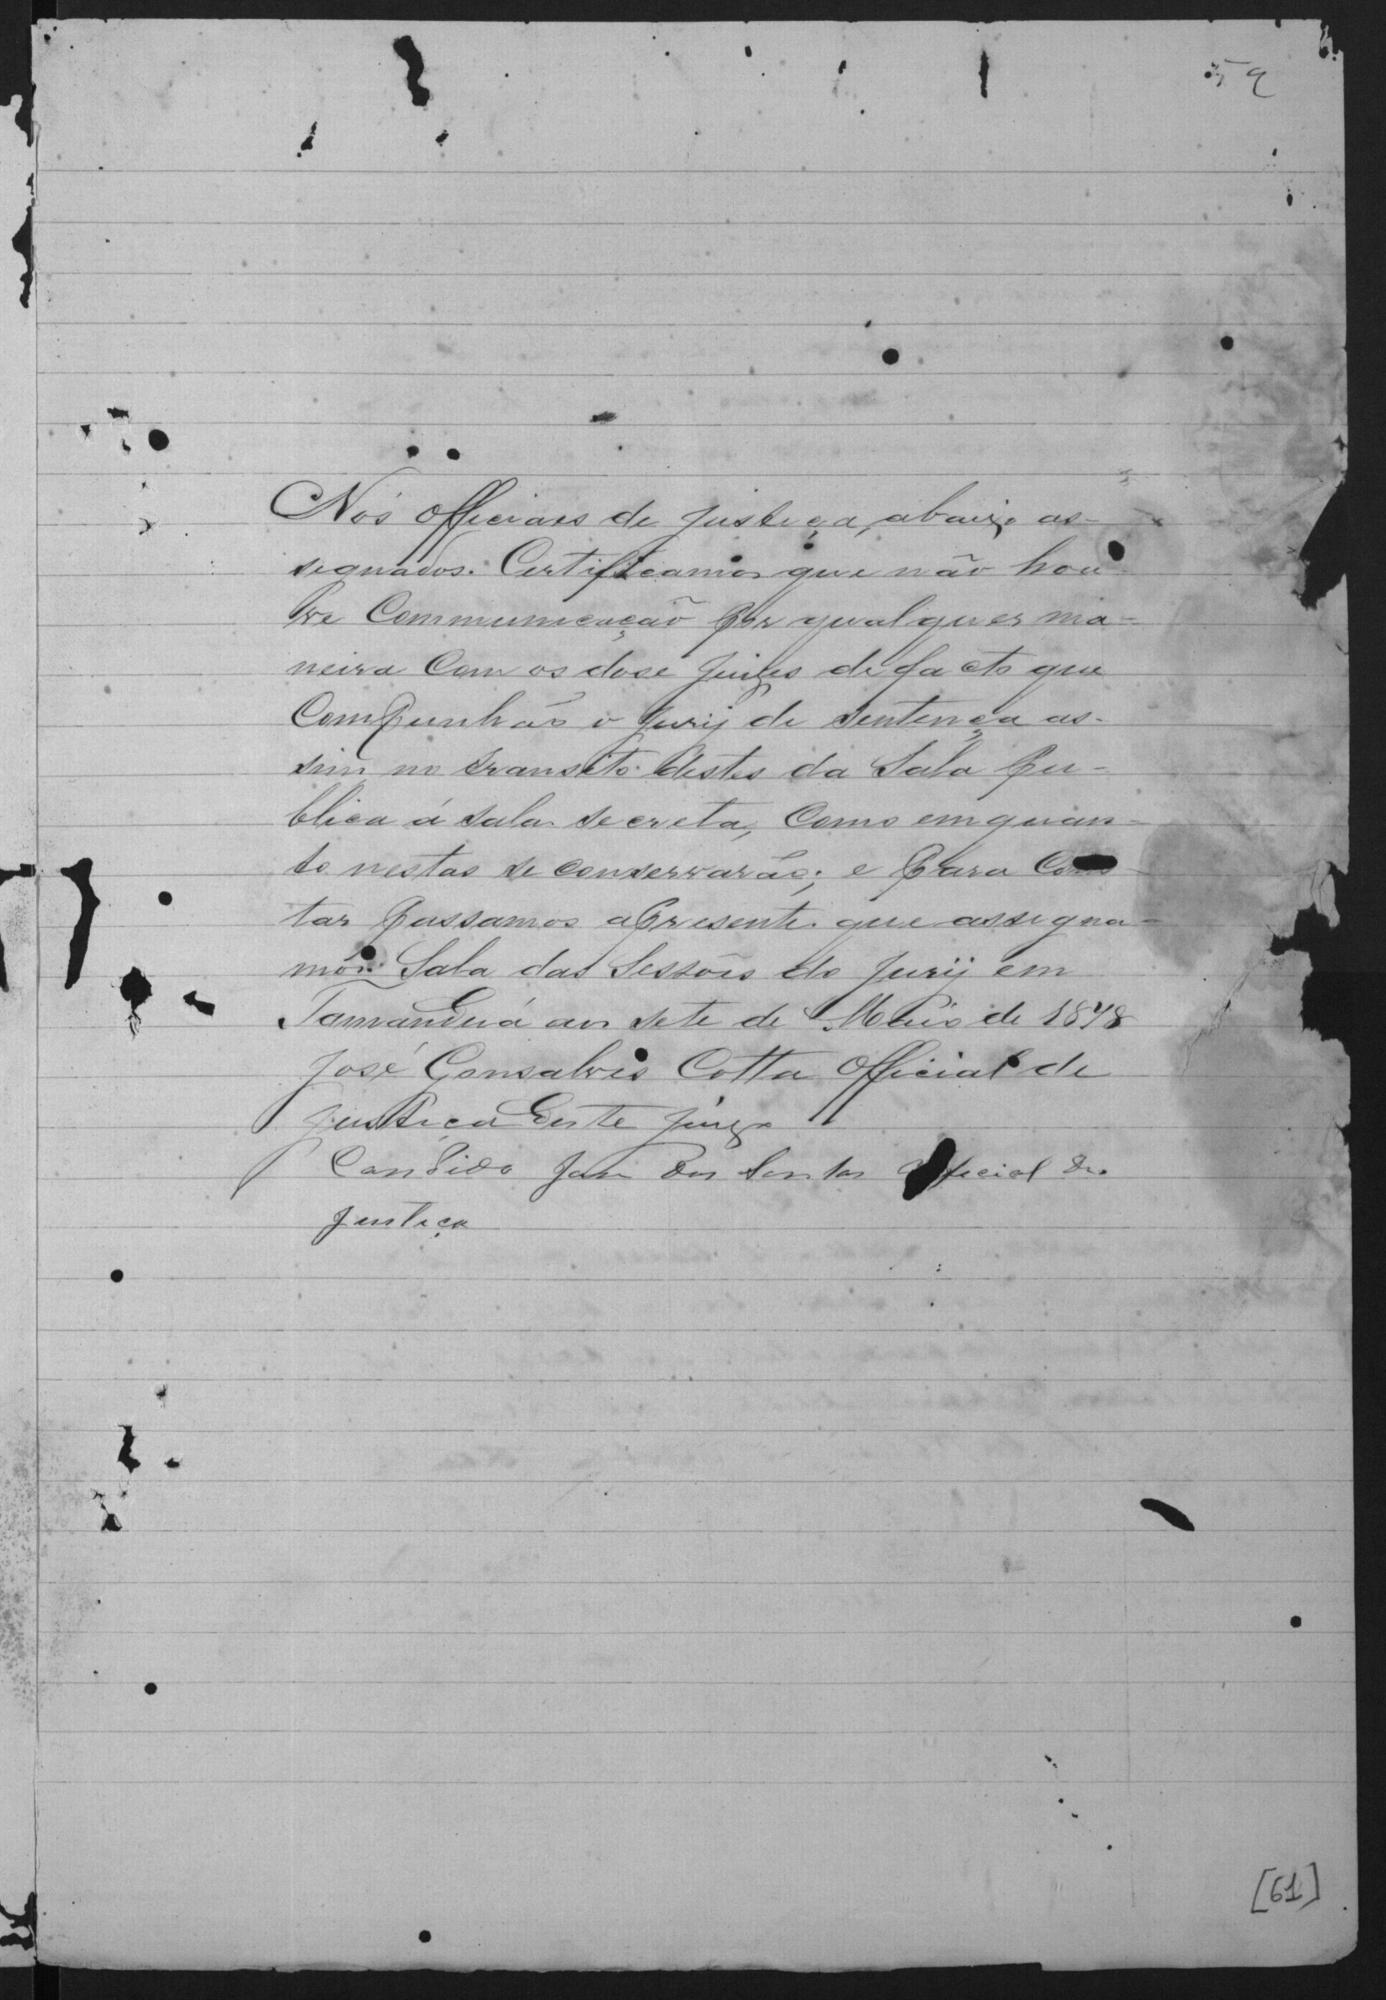 59
Nós officiaes de justiça, abaixo as-
segnados. Certificamos que não hou
ve Communicação por qualquer ma-
neira Com os dose juizes de facto que
Compunhão o jurij de sentença as-
sim no transito destes da Sala Pu-
blica á sala secreta, Como emquan-
to nestas se conservarão; e para Cons
tar passamos apresente que assigna-
mos. Sala das Sessões do jurij em
Tamanduá aos sete de Maio de 1878
José Gonsalves Cotta Official de
justiça deste juizo
Candido José dos Santos official de
justiça
[61]